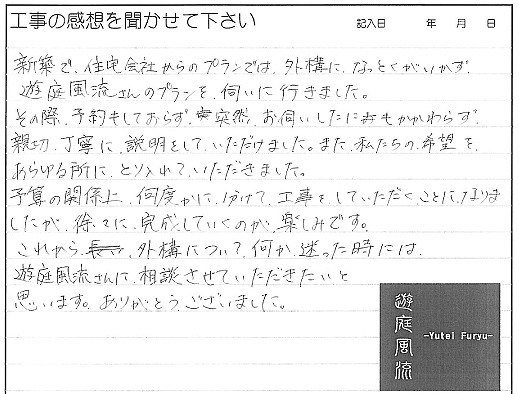 工事の感想を聞かせて下さい
記入日 年 月 日
新築で、住宅会社からのプランでは、外構に、なっとくがいかず、
遊庭風流さんのプランを、伺いに行きました。
その際、予約もしておらず、突然、お伺いしたにおもかかわらず、
親切、丁寧に、説明をして、いただけました。また、私たちの、希望を、
あらゆる所に、とり入れて、いただきました。
予算の関係上、何度かに、分けて、工事をしていただくことに、なりま
したが、徐々に、完成していくのが、楽しみです。
これから、外構について、何か、迷った時には、
遊庭風流さんに、相談させていただきたいと
思います。ありがとうございました。
遊庭風流
-Yutei Furyu-